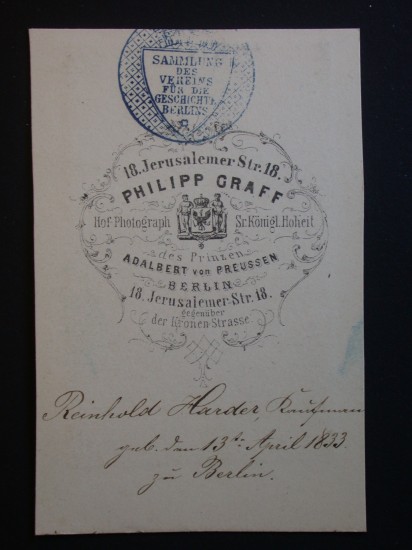 SAMMLUNG
DES
VEREINS
FÜR DIE
GESCHICHTE
BERLINS
18. Jerusalemer Str. 18.
PHILIPP GRAFF
Hof Photograph Sr. Königl. Hoheit
des Prinzen
ADALBERT von PREUSSEN
BERLIN
18. Jerusalemer-Str. 18.
gegenüber
der Kronen-Strasse
Reinhold Harder, Kaufmann
geb. den 13ten April 1833.
zu Berlin.